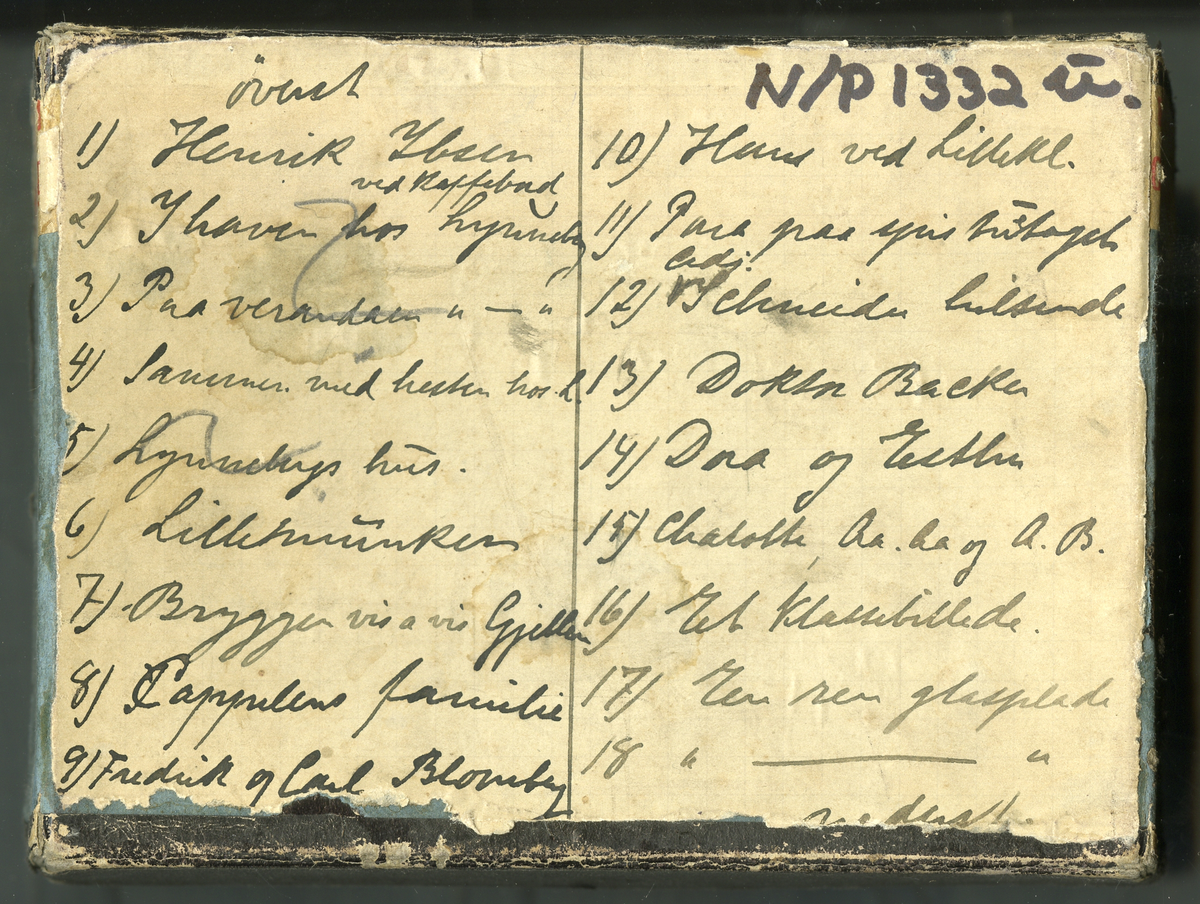 øverst
1) Henrik Ibsen
ved Kaffebord
2) I haven hos Lynneby
3) Paa verandaen " — "
4) Sammen med hesten hos L.
5) Lynnebys hus.
6)
7) Bryggen vis a vis
8) Cappelens familie
9) Fredrik og Carl Blomberg
N/P 1332 u.
10) Hans ved Lillekl.
11) Paa
12) Schneider hilsende
13) Doktor Backer
14) Dora og Esther
15) Charlotte, Aa. Aa og A. B.
16) Et Klassebillede.
17) En ren glasplade
18 " — "
nederst.